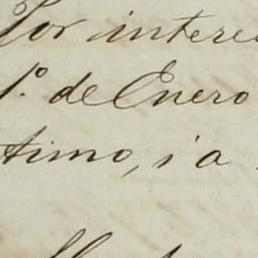 Por intere
1º de Enero
timo, i a